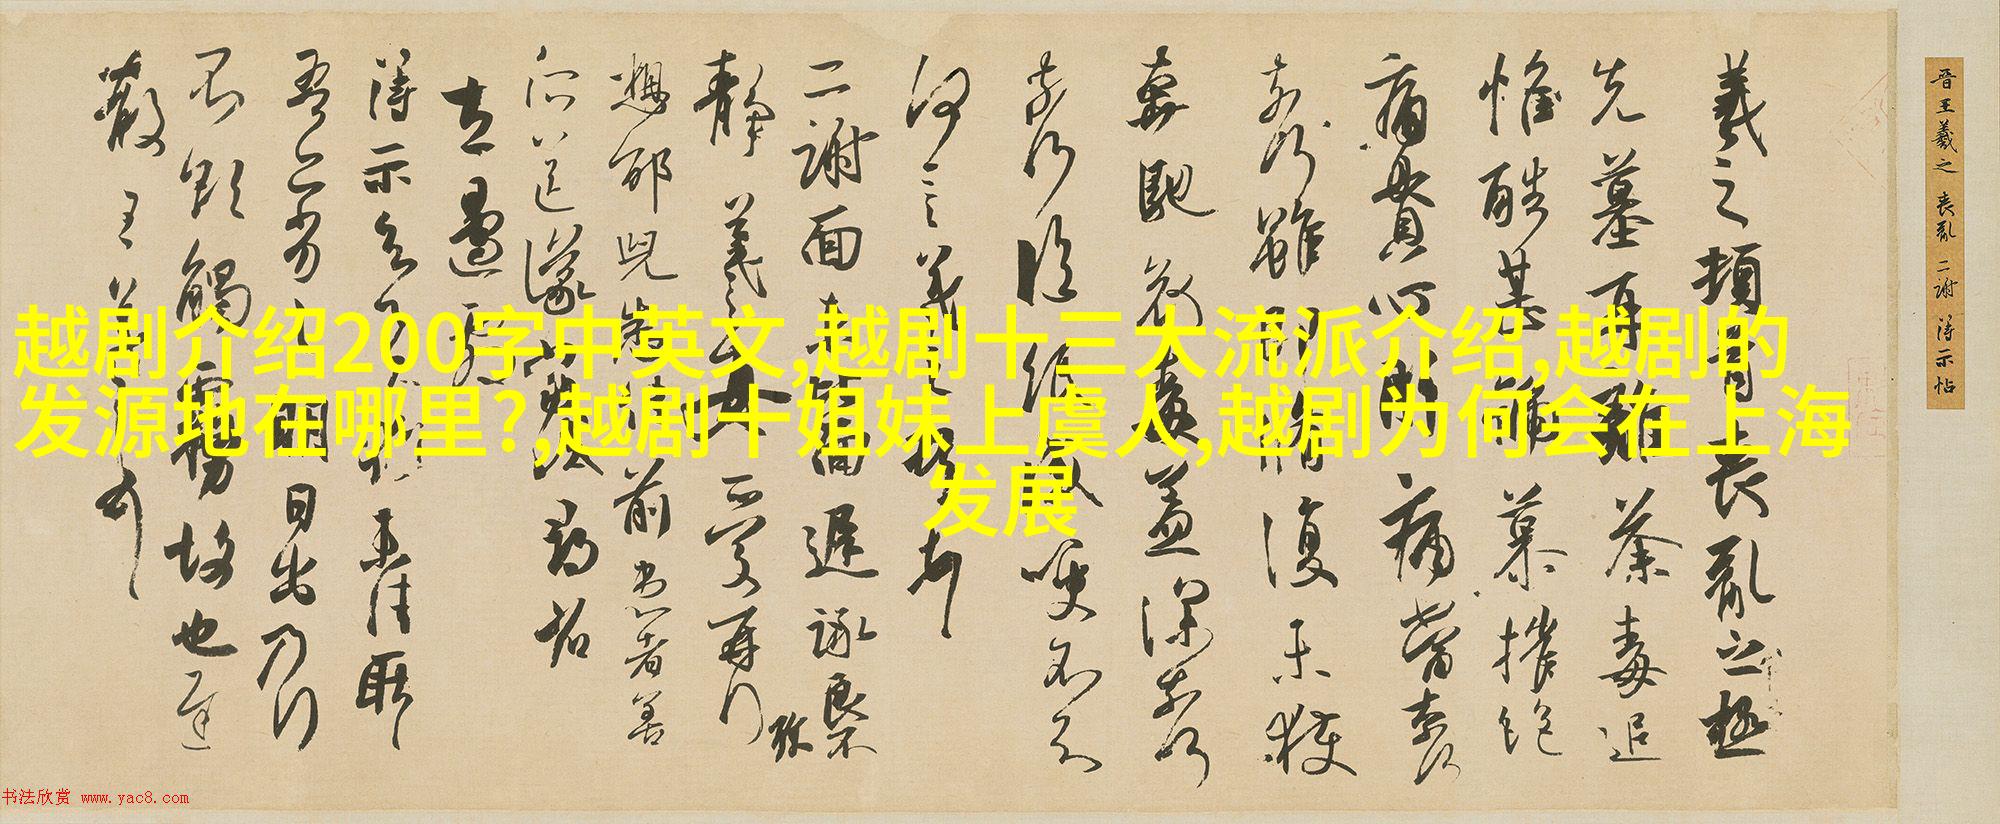 越剧介绍200字中英文,越剧十三大流派介绍,越剧的
发源地在哪里?,越剧十姐妹上虞人,越剧为何会在上海
发展
晋王羲之 丧乱 二謝 得示帖
羲之頓首喪亂之極
先墓再離荼毒追
惟酷甚號慕摧絕
痛貫心肝痛當奈何
奈何雖即脩復未獲
奔馳哀毒益深奈何
奈何臨紙感哽不知
何言羲之頓首
二謝面未比面遲詠良不
靜 羲之女愛再行
想邵兒悉佳前患者善
左邊劇
得示知足下猶未佳耿
吾亦劣明日出乃行
不欲觸霧故也遲
散 王羲之頓首
书法欣赏 www.yac8.com